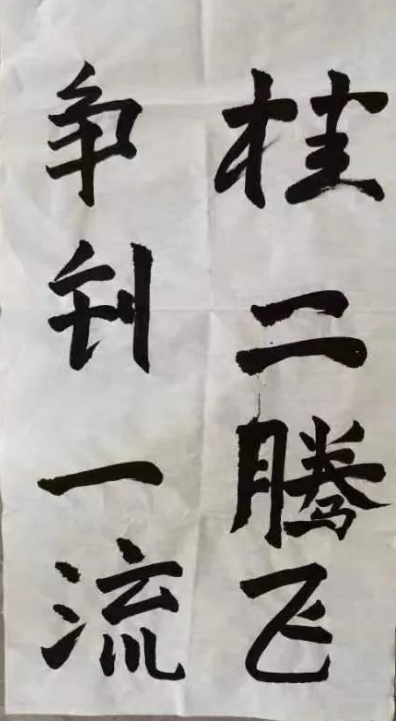 桂二腾飞
争创一流